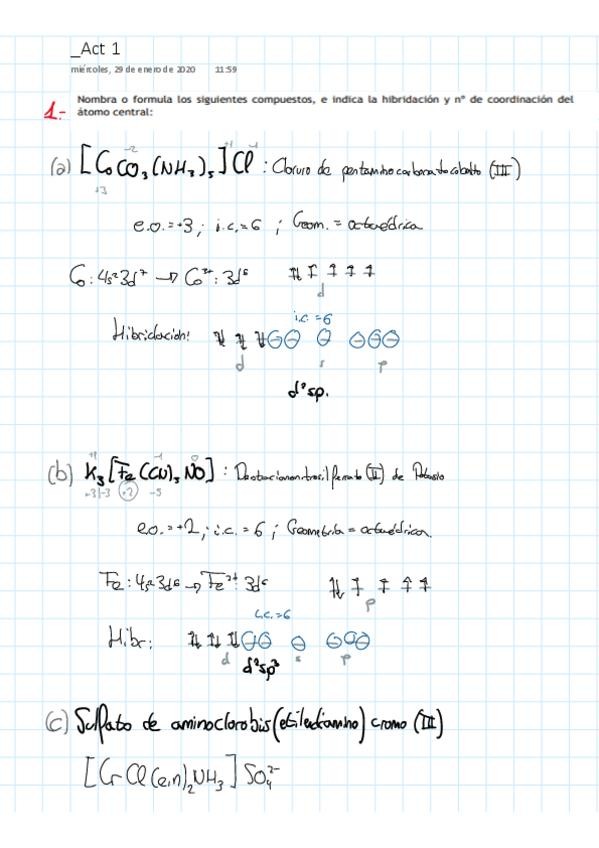 _Act 1
miércoles, 29 de enero de 2020 11:59
1.- Nombra o formula los siguientes compuestos, e indica la hibridación y nº de coordinación del
átomo central:
-2 -1
(a) [CoCO₃(NH₃)₅]Cl : Cloruro de (III)
+3
e.o.=+3; i.c.=6 ; Geom. = octaédrica
Co: 4s²3d⁷ → Co³⁺: 3d⁶
d
i.c.=6
Hibridación:
d s p
d²sp.
+1 -1 0
(b) K₃[Fe(CN)₅NO] : (II) de Potasio
+3|-3 +2 -5
e.o.=+2; i.c.=6; Geometría=octaédrica.
Fe: 4s²3d⁶ → Fe²⁺: 3d⁶
p
i.c.=6
Hibr:
d s p
d²sp³
(c) Sulfato de aminoclorobis(etilendiamino) cromo (III)
[CrCl(en)₂NH₃]SO₄²⁻